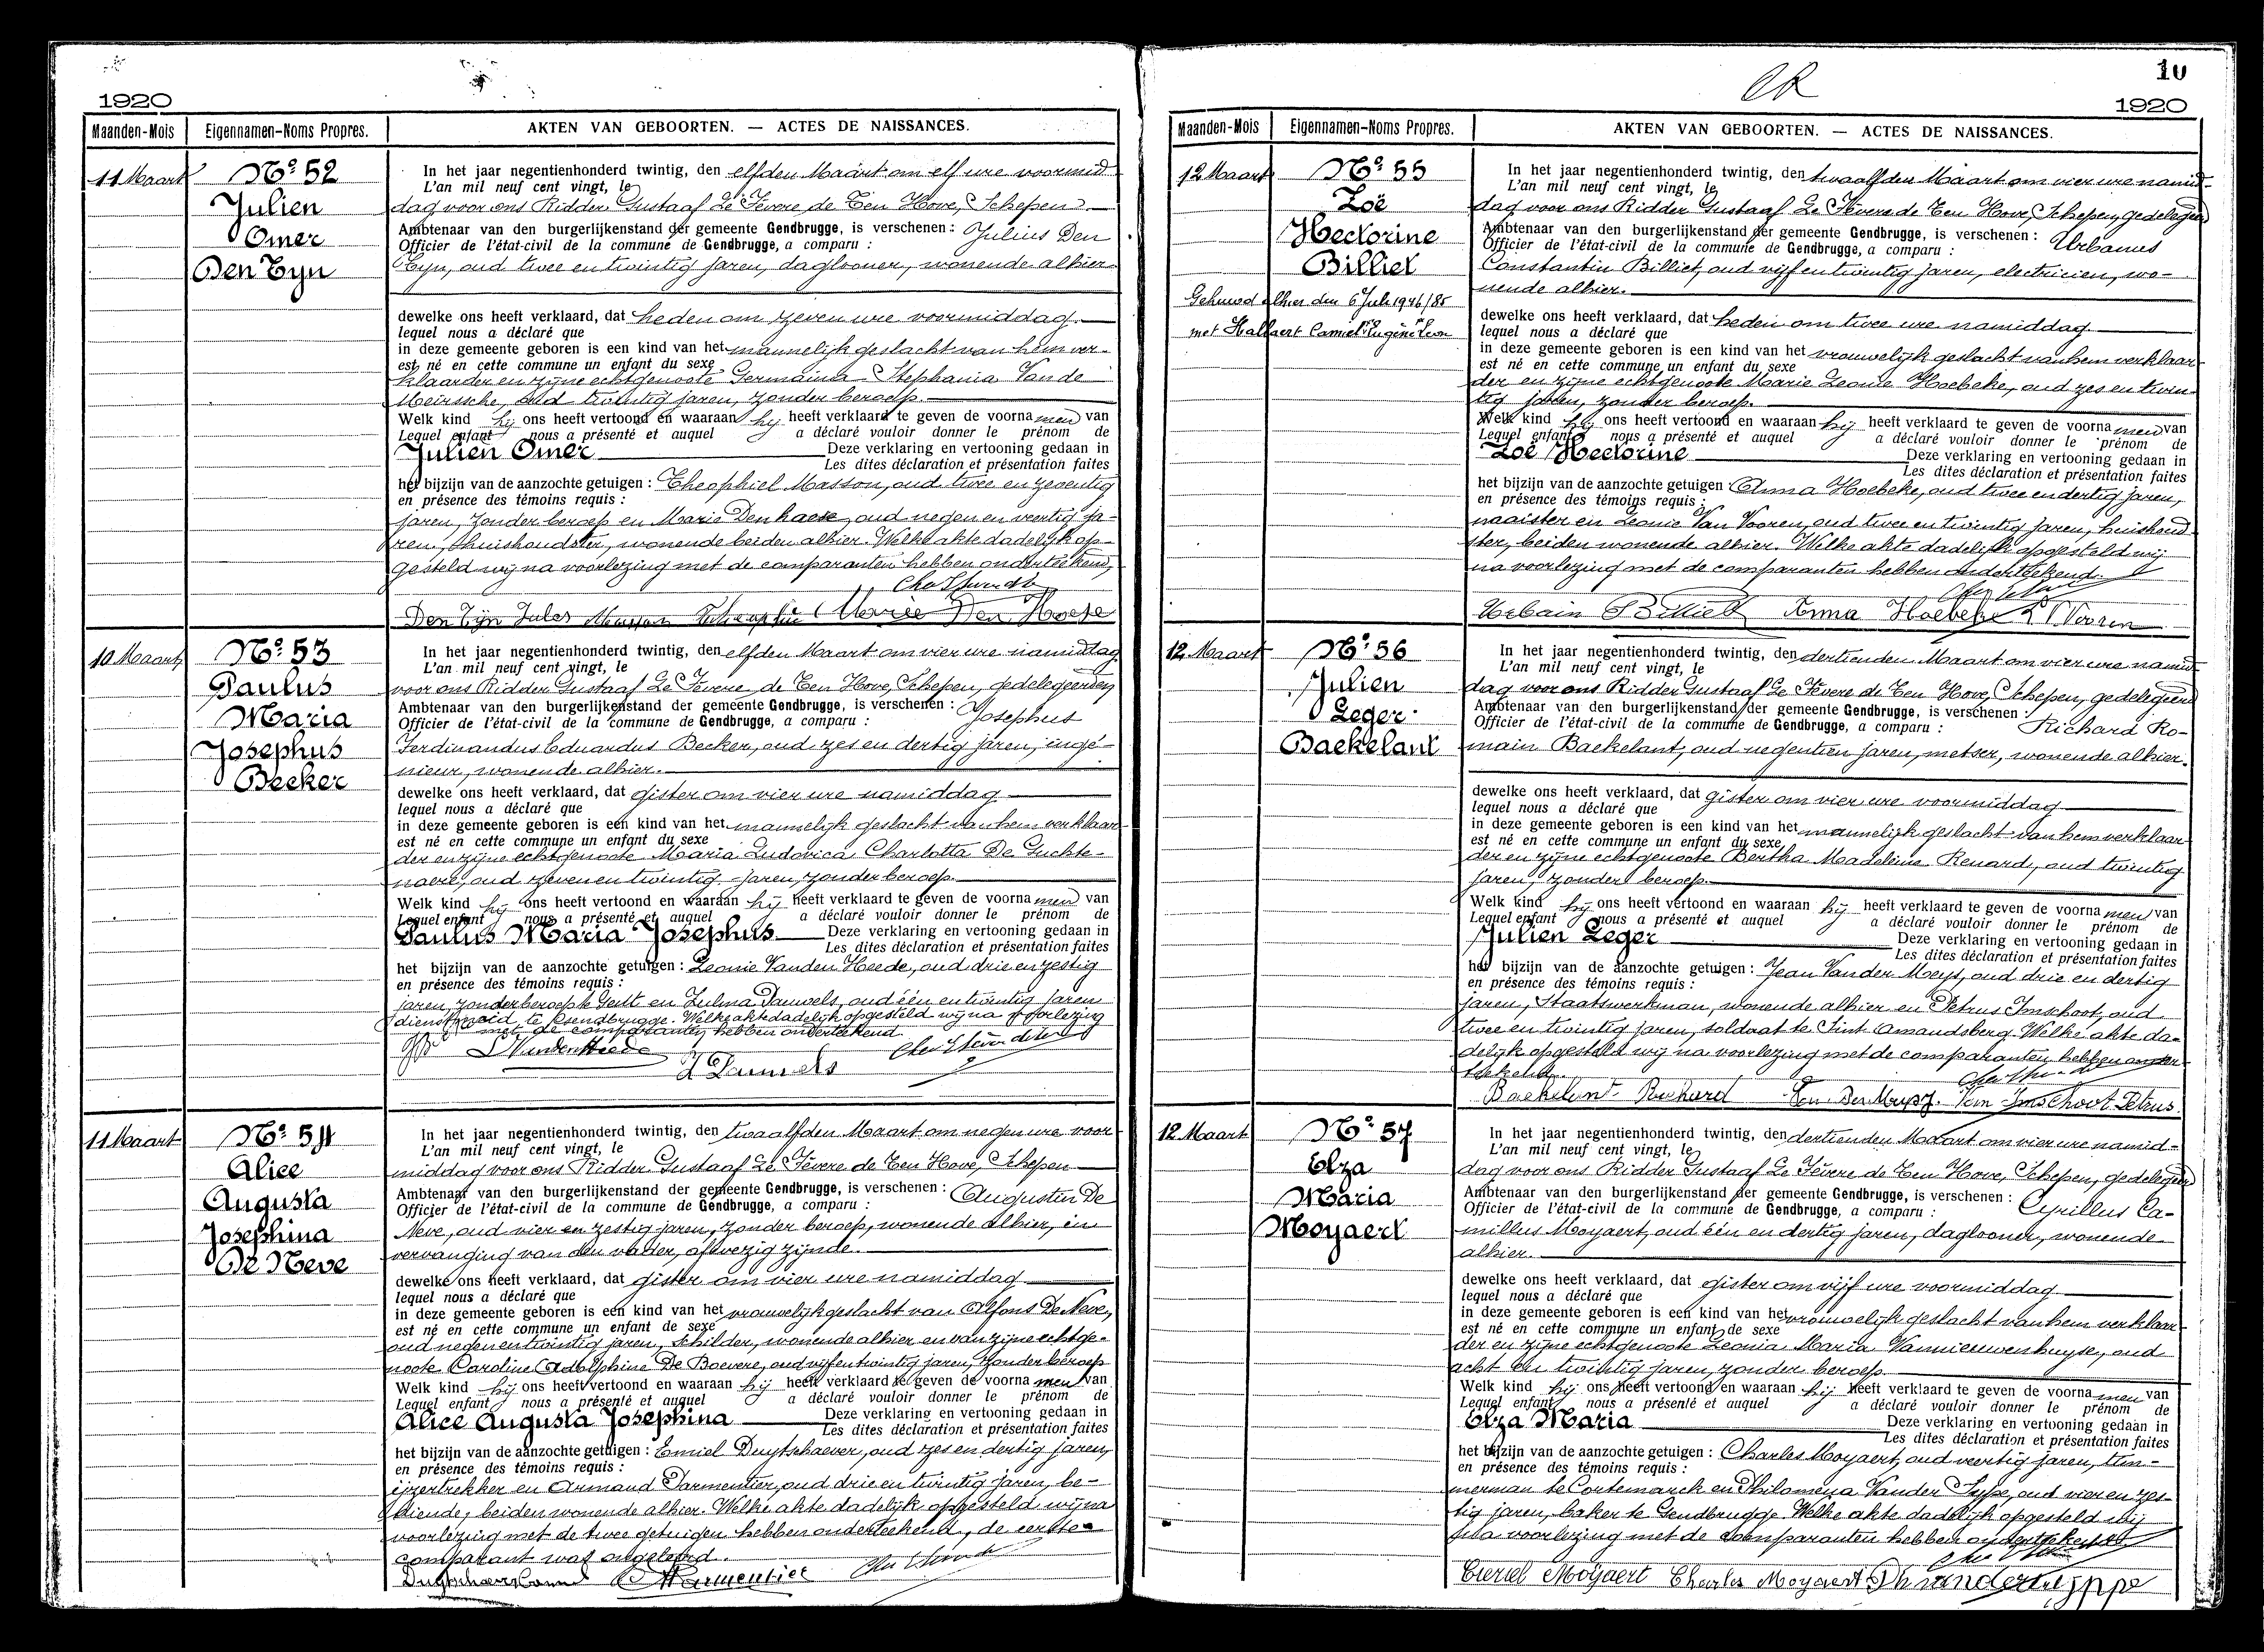 1920
Maanden-Mois Eigennamen-Noms Propres. AKTEN VAN GEBOORTEN. — ACTES DE NAISSANCES.
11 Maart
Nº 52
Julien
Omer
Den Tyn
In het jaar negentienhonderd twintig, den elfden Maart om elf ure voormid-
L'an mil neuf cent vingt, le
dag voor ons Ridder Gustaaf Le Fevere de Ten Hove, Schepen
Ambtenaar van den burgerlijkenstand der gemeente Gendbrugge, is verschenen : Julius Den
Officier de l'état-civil de la commune de Gendbrugge, a comparu :
Tyn, oud twee en twintig jaren, daglooner, wonende alhier
dewelke ons heeft verklaard, dat heden om zeven ure voormiddag.
lequel nous a déclaré que
in deze gemeente geboren is een kind van het mannelijk geslacht van hem ver-
est né en cette commune un enfant du sexe
klaarder en zijne echtgenoote Germaina Stephania Van de
Meirssche, oud twintig jaren, zonder beroep.
Welk kind hij ons heeft vertoond en waaraan hij heeft verklaard te geven de voornamen van
Lequel enfant nous a présenté et auquel a déclaré vouloir donner le prénom de
Julien Omer Deze verklaring en vertooning gedaan in
Les dites déclaration et présentation faites
het bijzijn van de aanzochte getuigen : Theophiel Masson, oud twee en zeventig
en présence des témoins requis :
jaren, zonder beroep en Marie Den haese, oud negen en veertig ja-
ren, huishoudster, wonende beiden alhier. Welke akte dadelijk op-
gesteld wij na voorlezing met de comparanten hebben onderteekend,
Den Tijn Jules Masson Marie Den Haese
10 Maart
Nº 53
Paulus
Maria
Josephus
Becker
In het jaar negentienhonderd twintig, den elfden Maart om vier ure namiddag
L'an mil neuf cent vingt, le
voor ons Ridder Gustaaf Le Fevere de Ten Hove, Schepen, gedelegeerden
Ambtenaar van den burgerlijkenstand der gemeente Gendbrugge, is verschenen : Josephus
Officier de l'état-civil de la commune de Gendbrugge, a comparu :
Ferdinandus Eduardus Becker, oud zes en dertig jaren, inge-
nieur, wonende alhier.
dewelke ons heeft verklaard, dat gister om vier ure namiddag
lequel nous a déclaré que
in deze gemeente geboren is een kind van het mannelijk geslacht van hem verklaar-
est né en cette commune un enfant du sexe
der en zijne echtgenoote Maria Ludovica Charlotta De Guchte-
naere, oud zeven en twintig jaren, zonder beroep.
Welk kind hij ons heeft vertoond en waaraan hij heeft verklaard te geven de voornamen van
Lequel enfant nous a présenté et auquel a déclaré vouloir donner le prénom de
Paulus Maria Josephus Deze verklaring en vertooning gedaan in
Les dites déclaration et présentation faites
het bijzijn van de aanzochte getuigen : Leonie Vanden Heede, oud drie en zestig
en présence des témoins requis :
jaren, zonder beroep te Gent en Zulma Pauwels, oud één en twintig jaren
dienstmeid te Gendbrugge. Welke akte dadelijk opgesteld wij na voorlezing
met de comparanten hebben onderteekend.
L Vanden Heede
Z Pauwels
11 Maart
Nº 54
Alice
Augusta
Josephina
De Neve
In het jaar negentienhonderd twintig, den twaalfden Maart om negen ure voor-
L'an mil neuf cent vingt, le
middag voor ons Ridder Gustaaf Le Fevere de Ten Hove, Schepen
Ambtenaar van den burgerlijkenstand der gemeente Gendbrugge, is verschenen : Augustin De
Officier de l'état-civil de la commune de Gendbrugge, a comparu :
Neve, oud vier en zestig jaren, zonder beroep, wonende alhier, in
vervanging van den vader, afwezig zijnde.
dewelke ons heeft verklaard, dat gister om vier ure namiddag
lequel nous a déclaré que
in deze gemeente geboren is een kind van het vrouwelijk geslacht van Alfons De Neve,
est né en cette commune un enfant de sexe
oud negen en twintig jaren, schilder, wonende alhier en van zijne echtge-
noote Caroline Adolphine De Boevere, oud vijf en twintig jaren, zonder beroep
Welk kind hij ons heeft vertoond en waaraan hij heeft verklaard te geven de voornamen van
Lequel enfant nous a présenté et auquel a déclaré vouloir donner le prénom de
Alice Augusta Josephina Deze verklaring en vertooning gedaan in
Les dites déclaration et présentation faites
het bijzijn van de aanzochte getuigen : Emiel Duytschaever, oud zes en dertig jaren,
en présence des témoins requis :
ijzertrekker en Armand Parmentier, oud drie en twintig jaren, be-
diende, beiden wonende alhier. Welke akte dadelijk opgesteld wij na
voorlezing met de twee getuigen hebben onderteekend, de eerste
comparant was ongeleerd.
Parmentier
CR
10
1920
Maanden-Mois Eigennamen-Noms Propres. AKTEN VAN GEBOORTEN. — ACTES DE NAISSANCES.
12 Maart
Nº 55
Zoë
Hectorine
Billiet
Gehuwd alhier den 6 Juli 1946/85
met Hallaert Camiel Eugène Leon
In het jaar negentienhonderd twintig, den twaalfden Maart om vier ure namid-
L'an mil neuf cent vingt, le
dag voor ons Ridder Gustaaf Le Fevere de Ten Hove, Schepen, gedelegeerd
Ambtenaar van den burgerlijkenstand der gemeente Gendbrugge, is verschenen : Urbanus
Officier de l'état-civil de la commune de Gendbrugge, a comparu :
Constantin Billiet, oud vijf en twintig jaren, electricien, wo-
nende alhier.
dewelke ons heeft verklaard, dat heden om twee ure namiddag
lequel nous a déclaré que
in deze gemeente geboren is een kind van het vrouwelijk geslacht van hem verklaar-
est né en cette commune un enfant du sexe
der en zijne echtgenoote Marie Leonie Hoebeke, oud zes en twin-
tig jaren, zonder beroep.
Welk kind hij ons heeft vertoond en waaraan hij heeft verklaard te geven de voornamen van
Lequel enfant nous a présenté et auquel a déclaré vouloir donner le prénom de
Zoë Hectorine Deze verklaring en vertooning gedaan in
Les dites déclaration et présentation faites
het bijzijn van de aanzochte getuigen : Anna Hoebeke, oud twee en dertig jaren,
en présence des témoins requis :
naaister en Leonie Van Vooren, oud twee en twintig jaren, huishoud-
ster, beiden wonende alhier. Welke akte dadelijk opgesteld wij
na voorlezing met de comparanten hebben onderteekend.
Urbain Billiet Anna Hoebeke L V Vooren
12 Maart
Nº 56
Julien
Leger
Baekelant
In het jaar negentienhonderd twintig, den dertienden Maart om vier ure namid-
L'an mil neuf cent vingt, le
dag voor ons Ridder Gustaaf Le Fevere de Ten Hove, Schepen, gedelegeerd
Ambtenaar van den burgerlijkenstand der gemeente Gendbrugge, is verschenen :
Officier de l'état-civil de la commune de Gendbrugge, a comparu : Richard Ro-
main Baekelant, oud negentien jaren, metser, wonende alhier.
dewelke ons heeft verklaard, dat gister om vier ure voormiddag
lequel nous a déclaré que
in deze gemeente geboren is een kind van het mannelijk geslacht van hem verklaar-
est né en cette commune un enfant du sexe
der en zijne echtgenoote Bertha Madeleine Renard, oud twintig
jaren, zonder beroep.
Welk kind hij ons heeft vertoond en waaraan hij heeft verklaard te geven de voornamen van
Lequel enfant nous a présenté et auquel a déclaré vouloir donner le prénom de
Julien Leger Deze verklaring en vertooning gedaan in
Les dites déclaration et présentation faites
het bijzijn van de aanzochte getuigen : Jean Vander Meys, oud drie en dertig
en présence des témoins requis :
jaren, Staatswerkman, wonende alhier en Petrus Imschoot, oud
twee en twintig jaren, soldaat te Sint Amandsberg. Welke akte da-
delijk opgesteld wij na voorlezing met de comparanten hebben onder-
teekend.
Baekelant Richard Van Imschoot Petrus
12 Maart
Nº 57
Elza
Maria
Moyaert
In het jaar negentienhonderd twintig, den dertienden Maart om vier ure namid-
L'an mil neuf cent vingt, le
dag voor ons Ridder Gustaaf Le Fevere de Ten Hove, Schepen, gedelegeerd
Ambtenaar van den burgerlijkenstand der gemeente Gendbrugge, is verschenen : Cyrillus Ca-
Officier de l'état-civil de la commune de Gendbrugge, a comparu :
millus Moyaert, oud één en dertig jaren, daglooner, wonende
alhier.
dewelke ons heeft verklaard, dat gister om vijf ure voormiddag
lequel nous a déclaré que
in deze gemeente geboren is een kind van het vrouwelijk geslacht van hem verklaar-
est né en cette commune un enfant de sexe
der en zijne echtgenoote Leonia Maria Vannieuwenhuyse, oud
acht en twintig jaren, zonder beroep.
Welk kind hij ons heeft vertoond en waaraan hij heeft verklaard te geven de voornamen van
Lequel enfant nous a présenté et auquel a déclaré vouloir donner le prénom de
Elza Maria Deze verklaring en vertooning gedaan in
Les dites déclaration et présentation faites
het bijzijn van de aanzochte getuigen : Charles Moyaert, oud veertig jaren, tim-
en présence des témoins requis :
merman te Cortemarck en Philomena Vander Sype, oud vier en zes-
tig jaren, baker te Gendbrugge. Welke akte dadelijk opgesteld wij
na voorlezing met de comparanten hebben onderteekend
Cieriel Moyaert Charles Moyaert